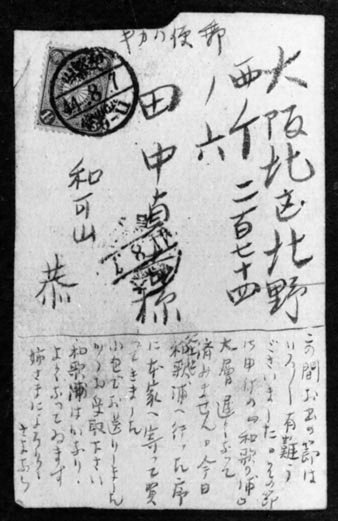 郵便ハカキ
大阪北区北野
西ノ丁二百七十四
ノ六
田中貞様
和可山
恭
44.8.7
この間お出の節は
いろいろ有難う
ございました。その節
「和歌の浦」
大層遅くなつて
済みません。今日
和歌浦へ行つた序
に本家へ寄つて買
つてきました
小包でお送りしました
からお受取下さい
和歌浦はかなり
よくなつてゐます
姉さまによろしく
さよなら